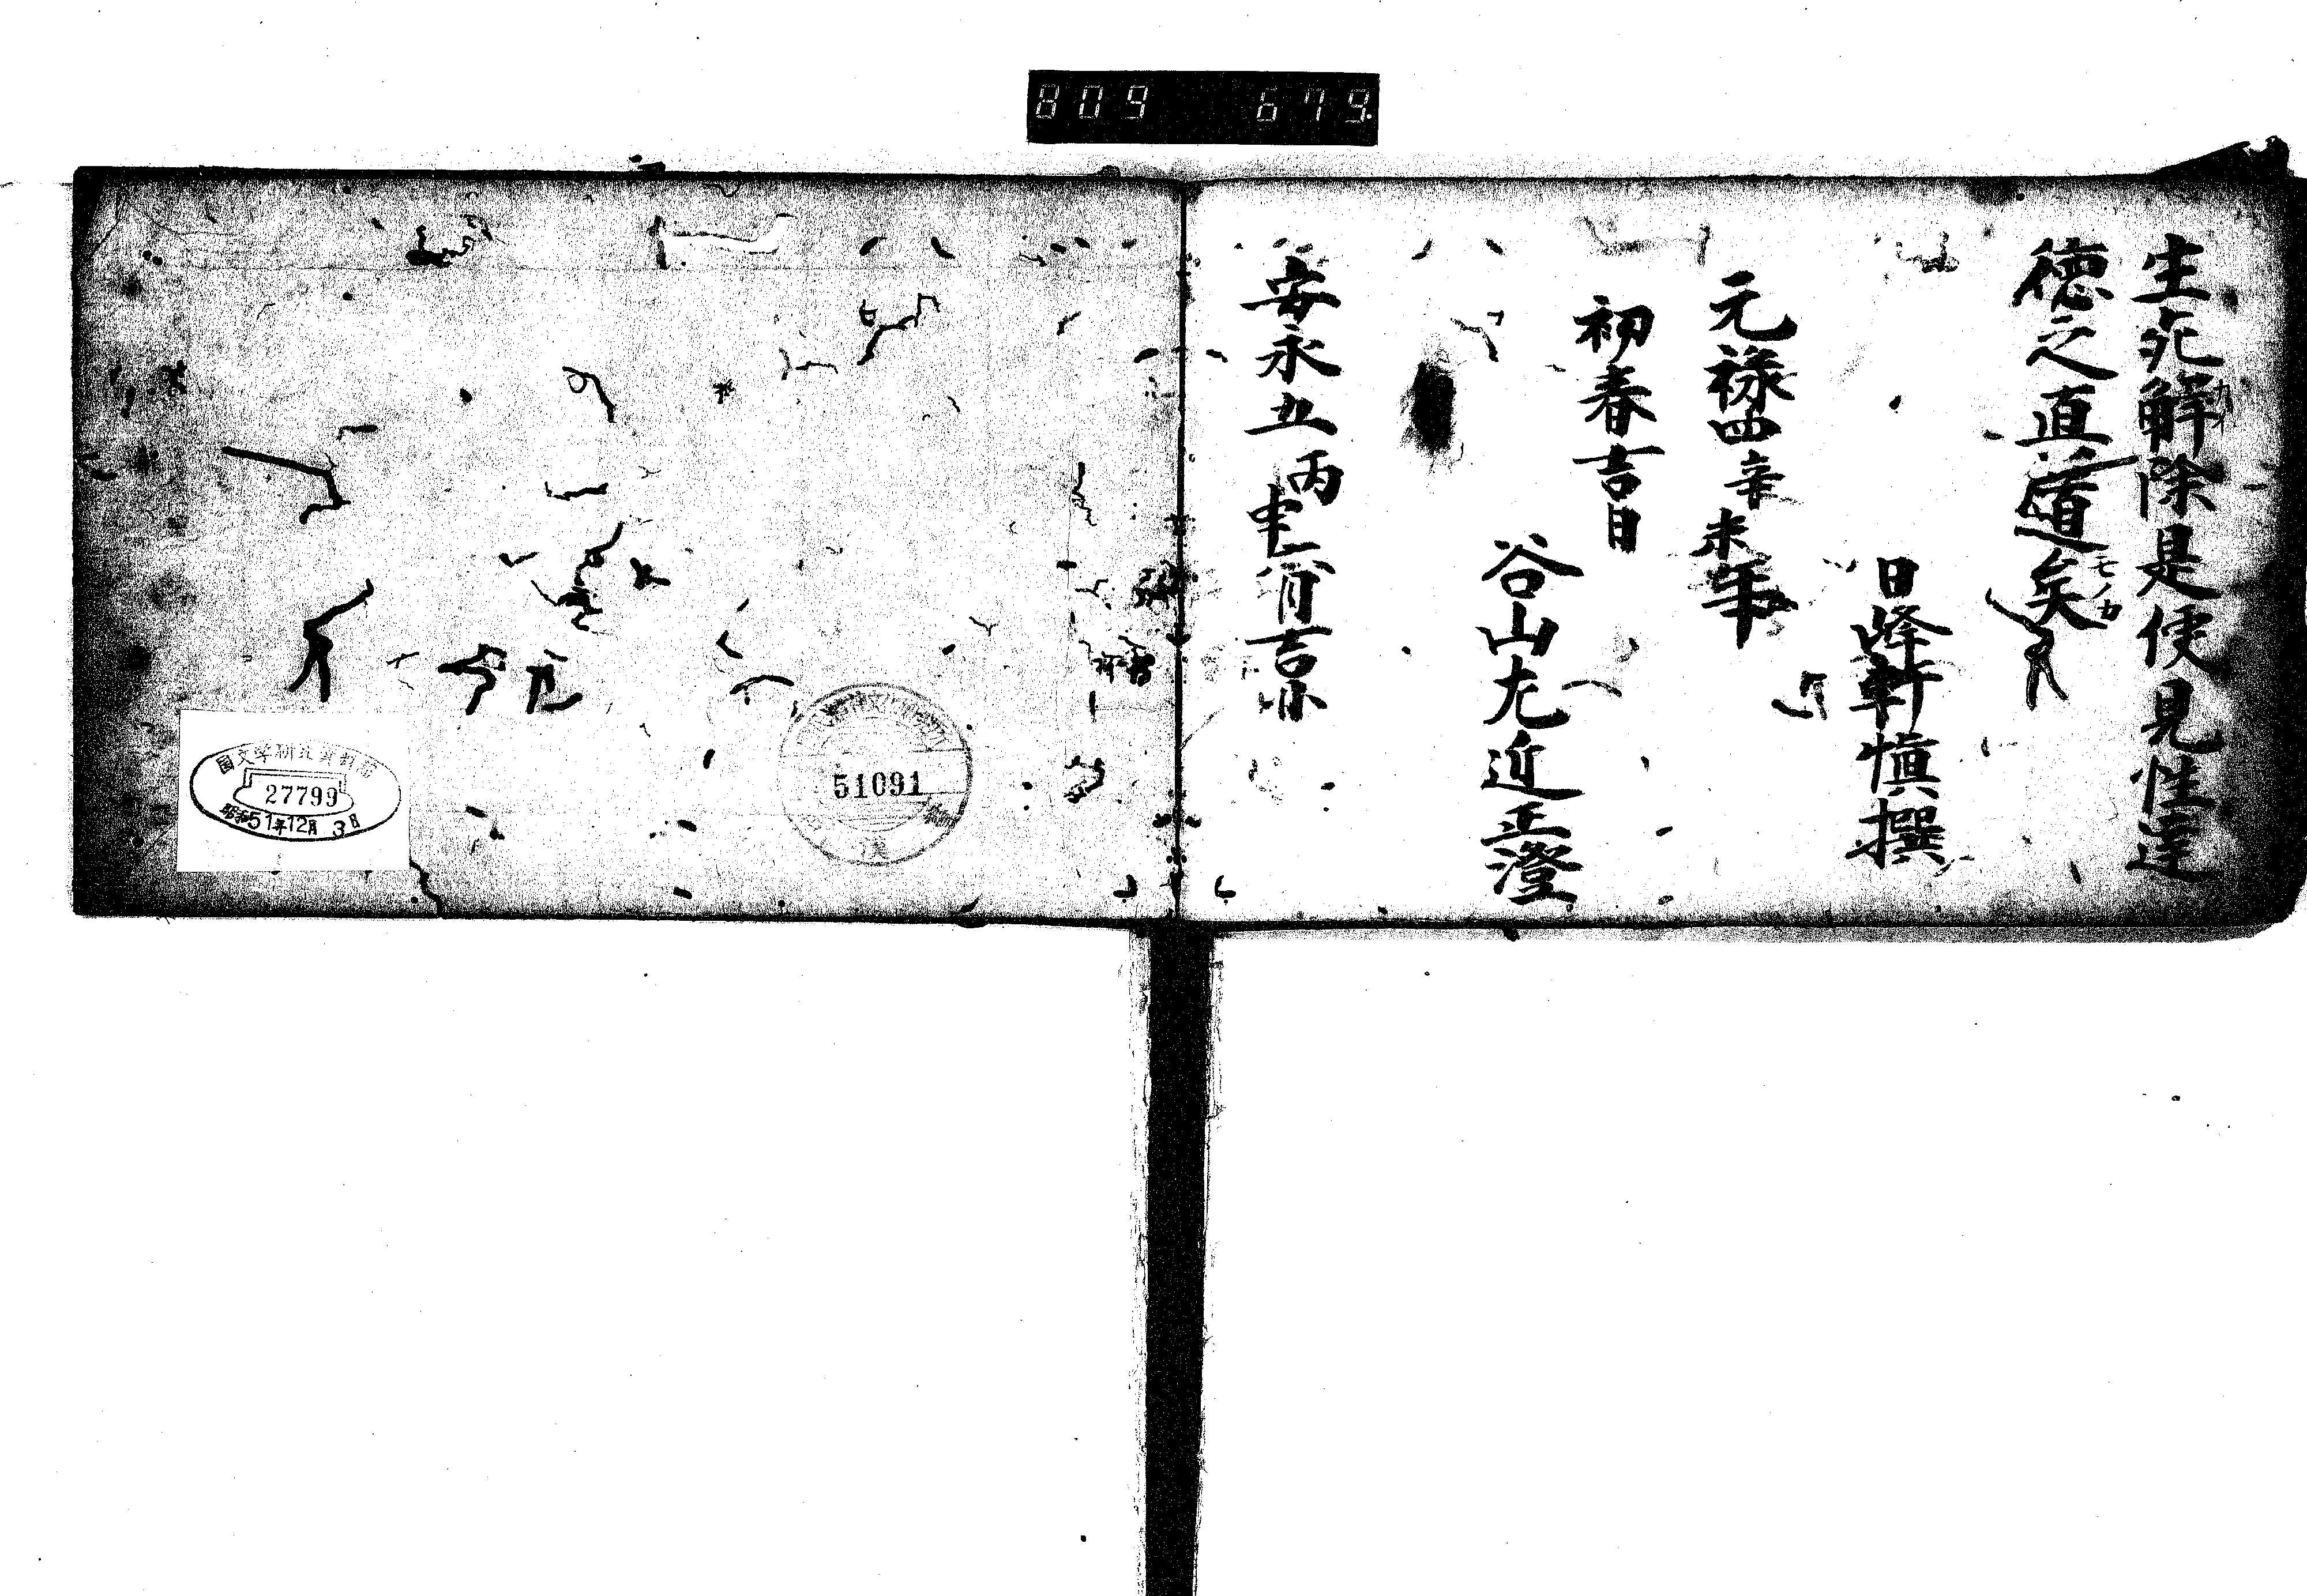 809 679
生死解除是使見性達
徳之直道矣
モノカ
日峰軒慎撰
元禄四辛未年
初春吉日
谷山左近正澄
安永五丙申六月吉日
51091
国文学研究資料館
27799
昭和51年12月3日